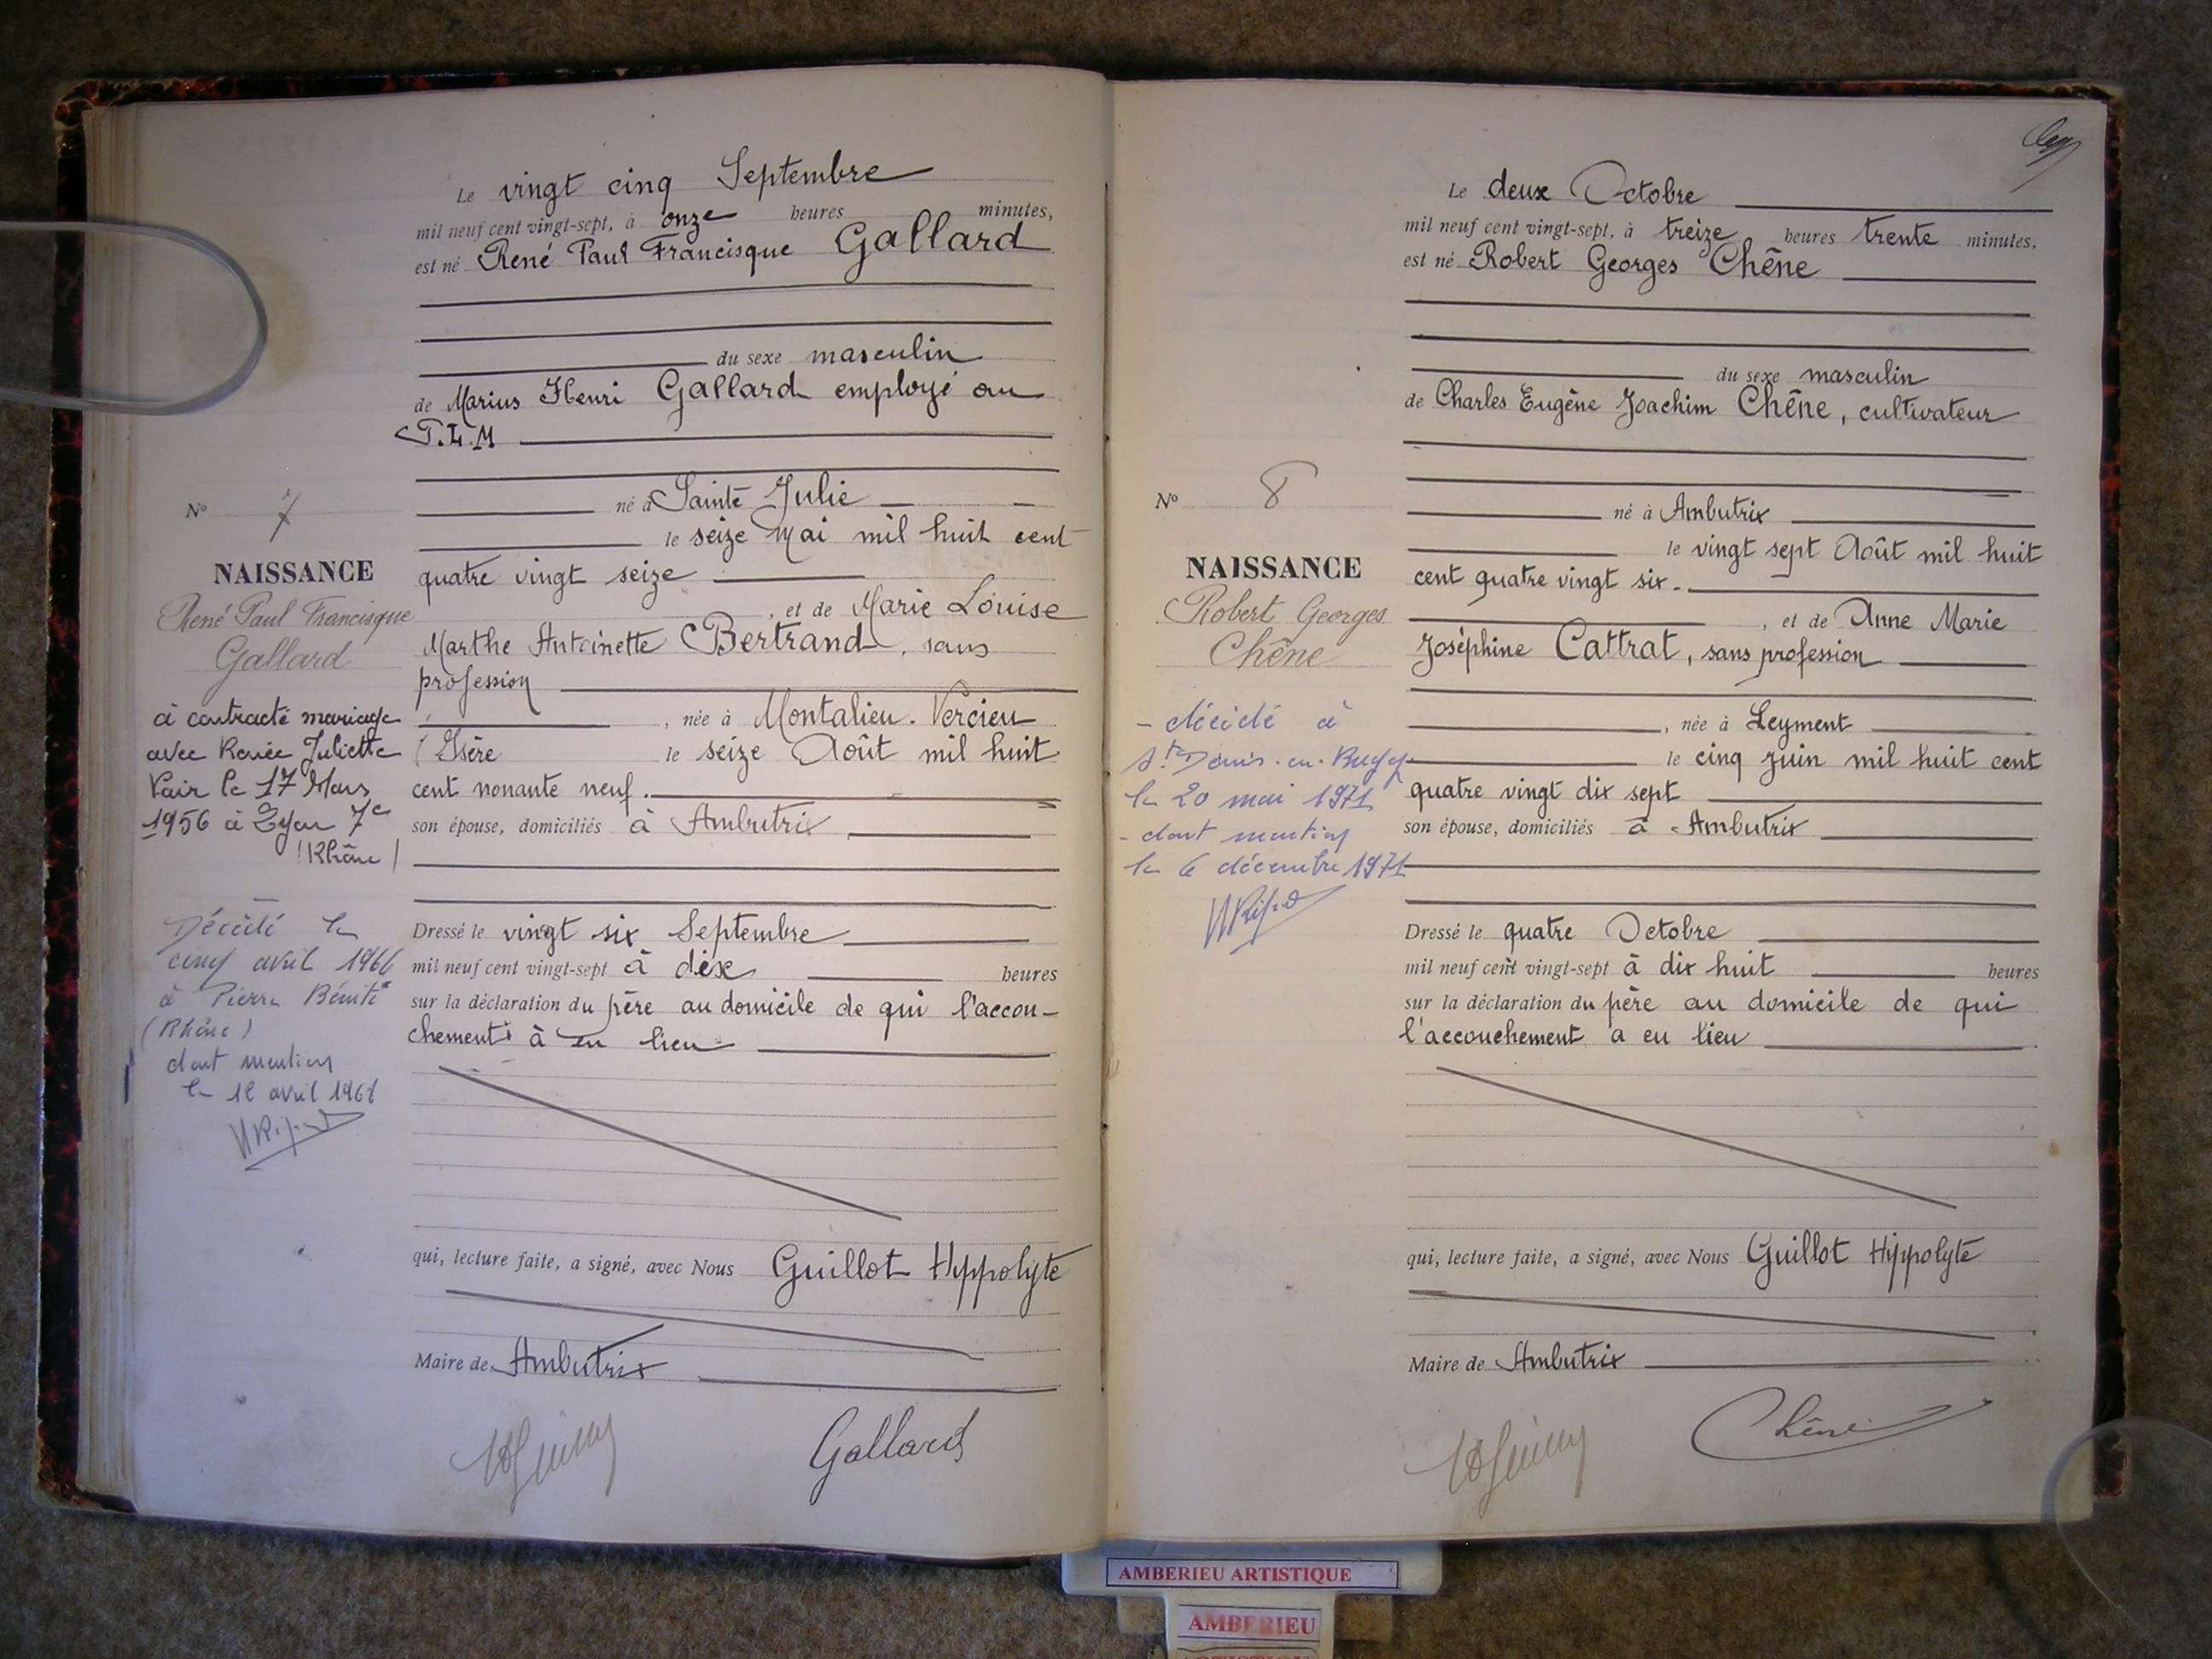 Le vingt cinq Septembre
mil neuf cent vingt-sept, à onze heures minutes,
est né René Paul Francisque Gallard
du sexe masculin
de Marius Henri Gallard employé au
P.L.M
né à Sainte Julie
le seize Mai mil huit cent
quatre vingt seize
, et de Marie Louise
Marthe Antoinette Bertrand, sans
profession
, née à Montalieu. Vercieu
(Isère le seize Août mil huit
cent nonante neuf.
son épouse, domiciliés à Ambutrix
Dressé le vingt six Septembre
mil neuf cent vingt-sept à dix heures
sur la déclaration du père au domicile de qui l'accou-
chement à eu lieu
qui, lecture faite, a signé, avec Nous Guillot Hippolyte
Maire de Ambutrix
Gallard
No 7
NAISSANCE
René Paul Francisque
Gallard
à contracté mariage
avec Renée Juliette
le 17 Mars
1956 à Lyon 7e
(Rhône)
Décédé le
cinq avril
à Pierre Bénite
(Rhône)
dont mention
le avril
Le deux Octobre
mil neuf cent vingt-sept, à treize heures trente minutes,
est né Robert Georges Chêne
du sexe masculin
de Charles Eugène Joachim Chêne, cultivateur
né à Ambutrix
le vingt sept Août mil huit
cent quatre vingt six.
, et de Anne Marie
Joséphine Cattrat, sans profession
, née à Leyment
le cinq Juin mil huit cent
quatre vingt dix sept
son épouse, domiciliés à Ambutrix
Dressé le quatre Octobre
mil neuf cent vingt-sept à dix huit heures
sur la déclaration du père au domicile de qui
l'accouchement a eu lieu
qui, lecture faite, a signé, avec Nous Guillot Hippolyte
Maire de Ambutrix
Chêne
No 8
NAISSANCE
Robert Georges
Chêne
- décédé à
St Denis-en-Bugey
le 20 mai 1971
- dont mention
le 6 décembre 1971
AMBERIEU ARTISTIQUE
AMBERIEU